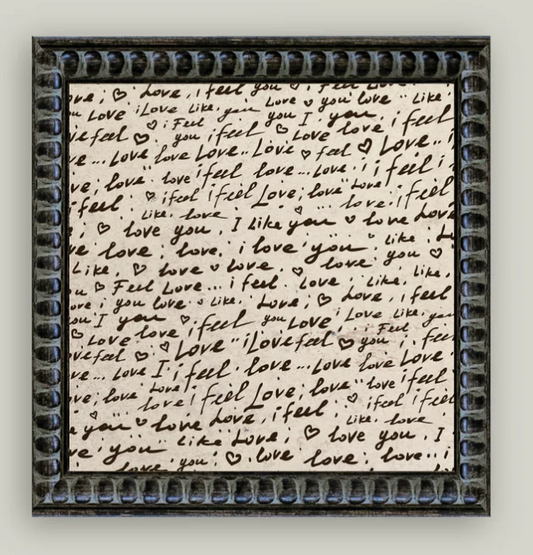 ove, ♡ Love, i feel you ♡ i Feel Love
Love iLove Like, you Love ♡ you love Like,
♡ i Feel you I you
feel ♡ you ifeel ♡ Love love ifeel
... Love love Love.. Love ♡ feel ♡ Love..
ve, love love ifeel love... Love. i feel i
ifeel. ♡ ifeel ifeel Love, love Love ifeel
Like, love ♡ love,
♡ love you, I Like you ♡ love Love
love, love, i love you Like,
Like, ♡ love ♡ love, ♡ love you ♡
♡ Feel Love... i feel. Love Like, Like,
i you love ♡ Like, Love, ♡ Love, ifeel
I you ♡ ifeel you Love, Love Like, you
♡ Love love Feel
vefeel ♡ Love iLovefeel ♡ you, i, feel
... Love I ifeel love... Love love Love
ve, love, Love ifeel Love, love love ifeel
♡ love ifeel ♡ ifeel ifeel
you ♡ love Love, ifeel Like, love
you Like Love, ♡ love you, I
love, you ♡ love love, love..